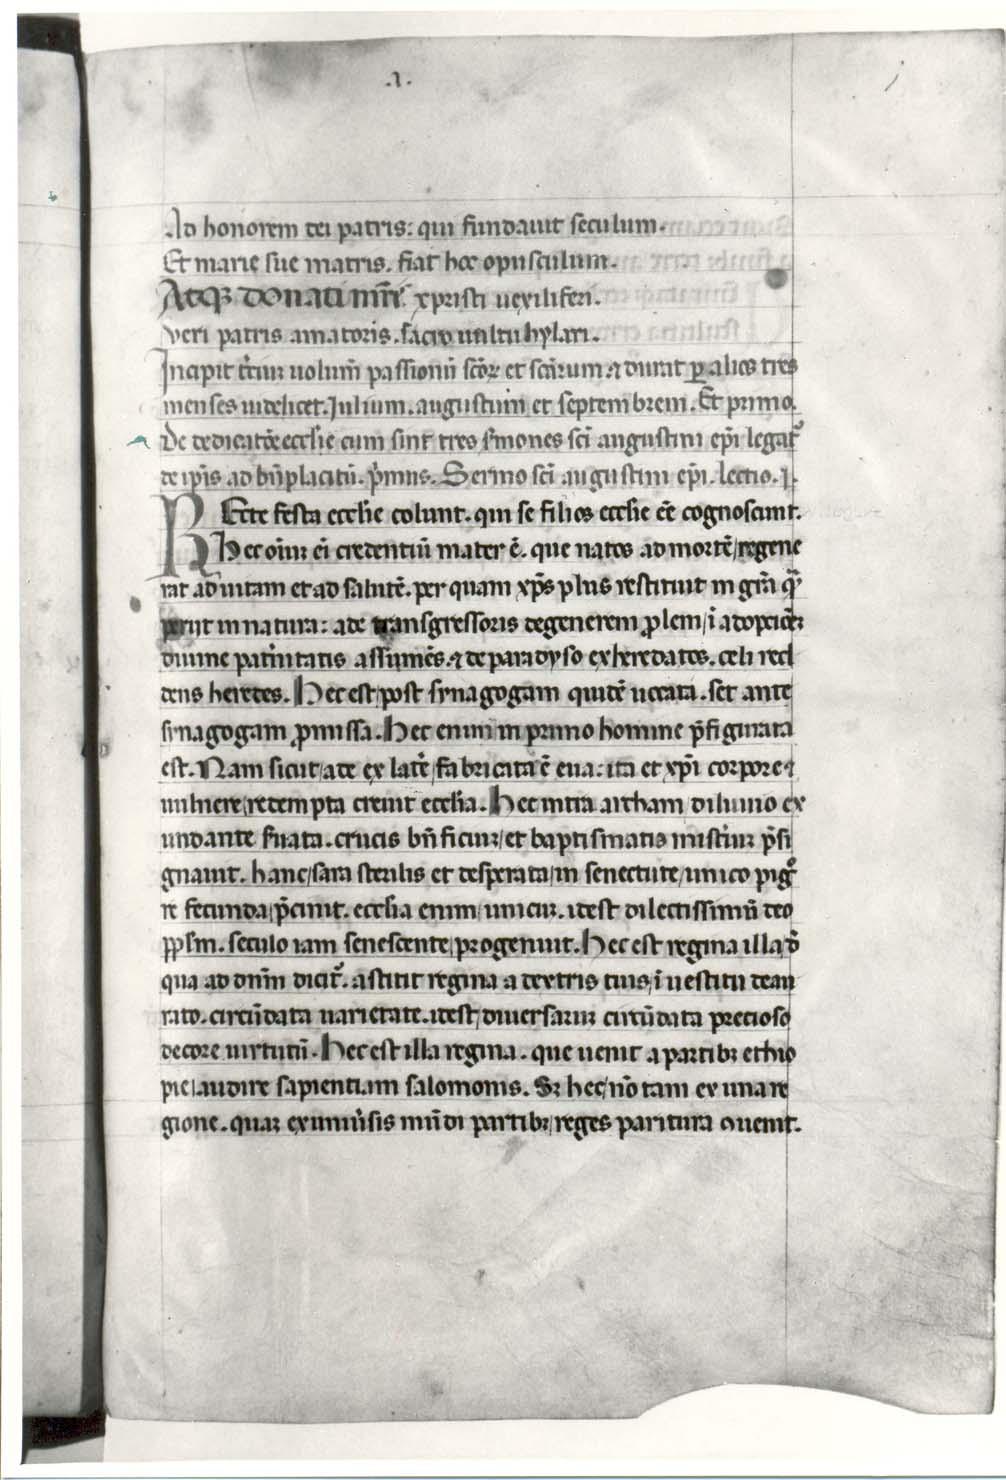 .1.
Ad honorem dei patris: qui fundauit seculum.
Et marie sue matris. fiat hoc opusculum.
Atq3 donati mr̄is. xpristi uexiliferi.
veri patris amatoris. facio uultu hylari.
Incipit t̓ciū uolum̄ passionū sc̄oꝝ et sc̄arum ⁊ durat ꝑ alios tres
menses uidelicet. Iulium. augustum et septembrem. Et primo.
De dedicatōe ecclesie cum sint tres s̓mones sc̄i augustini ep̄i legat᷑
de ip̄is ad bn̄placitū. p̓mus. Sermo sc̄i augustini ep̄i. lectio. j.
REcte festa ecclesie colunt. qui se filios ecclesie ēē cognoscunt.
Hec oīuꝫ ēī credentiū mater ē. que natos ad mortē/regene
rat ad uitam et ad salutē. per quam xp̄s plus restituit in grā qͣꝫ
perijt in natura: ade transgressoris degenerem ꝓlem/ī adopciōꝫ
diuine pat̓nitatis assumēs. ⁊ de paradyso exheredatos. celi red
dens heredes. Hec est/post synagogam quidē uocata. set ante
synagogam ꝓmissa. Hec enim in primo homine p̄figurata
est. Nam sicut/ade ex lat̓e/fabricata ē eua: ita et xp̄i corpore ⁊
uulnere/redempta creuit ecclesia. Hec intra archam/diluuio ex
undante s̓uata. crucis bn̄ficiuꝫ/et baptismatis mist̓iuꝫ p̄si
gnauit. hanc/sara sterilis et desperata/in senectute/unico pigᷣo
re fecunda/p̄cinit. ecclesia enim/unicuꝫ. idest dilectissimū deo
pp̄lm. seculo iam senescente/progenuit. Hec est regina illa/d̓
qua ad dn̄m dicit᷑. astitit regina a dextris tuis/ī uestitu deau
rato. circūdata uarietate. idest/diuersaruꝫ circūdata precioso
decore uirtutū. Hec est illa regina. que uenit a partibꝫ ethio
pie/audire sapientiam salomonis. Sꝫ hec/nō tam ex una re
gione. quaꝫ ex uniu̓sis mūdi partibꝫ/reges paritura ꝯuenit.